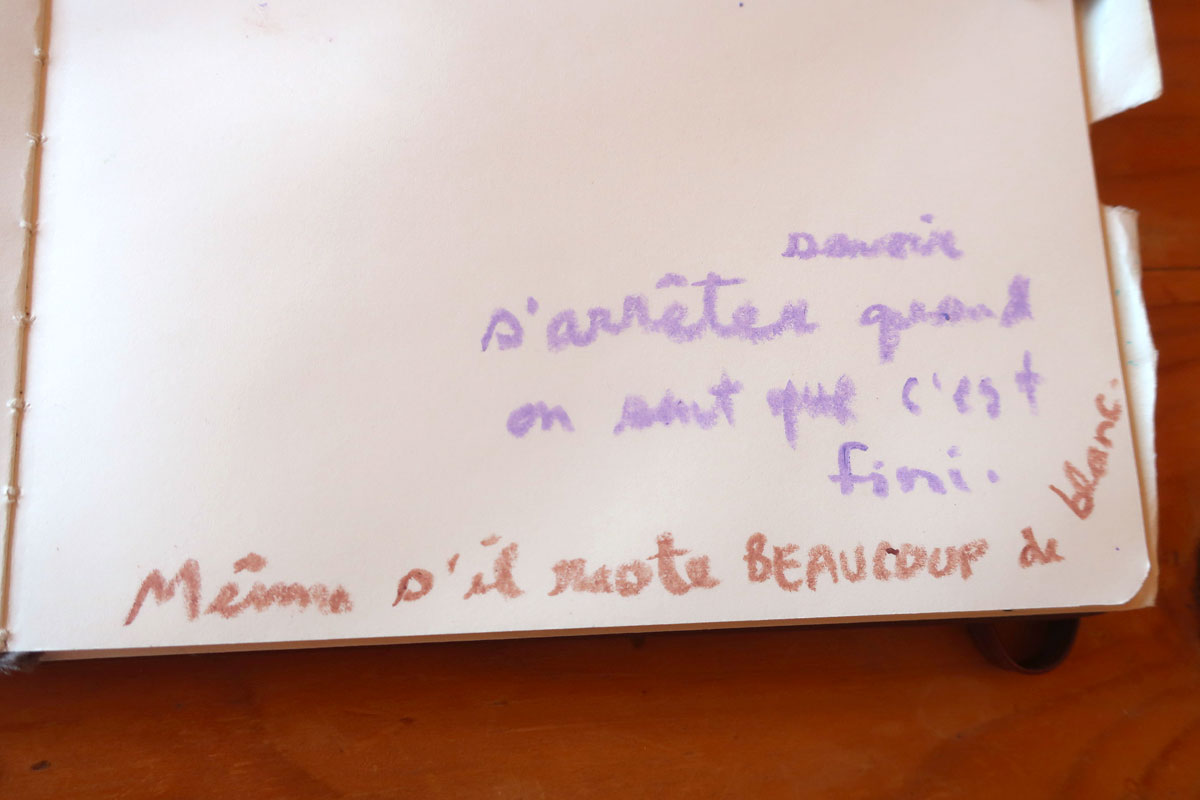 savoir
s'arrêter quand
on sent que c'est
fini.
Même s'il reste BEAUCOUP de blanc.